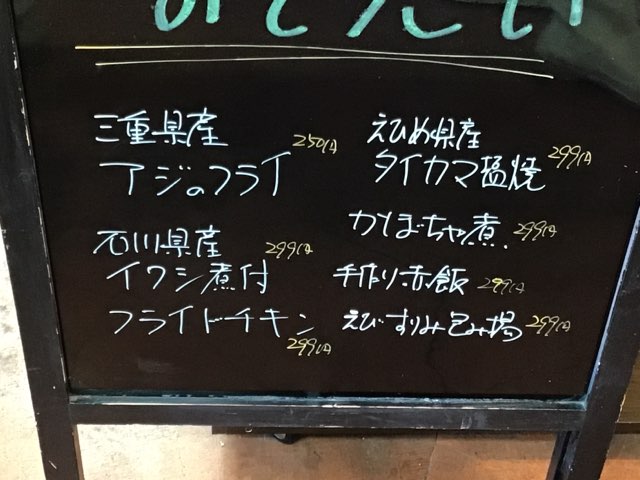 三重県産
アジのフライ 250円
石川県産
イワシ煮付 299円
フライドチキン
299円
えひめ県産
タイカマ塩焼 299円
かぼちゃ煮 299円
手作り赤飯 299円
えびすりみ包み揚 299円